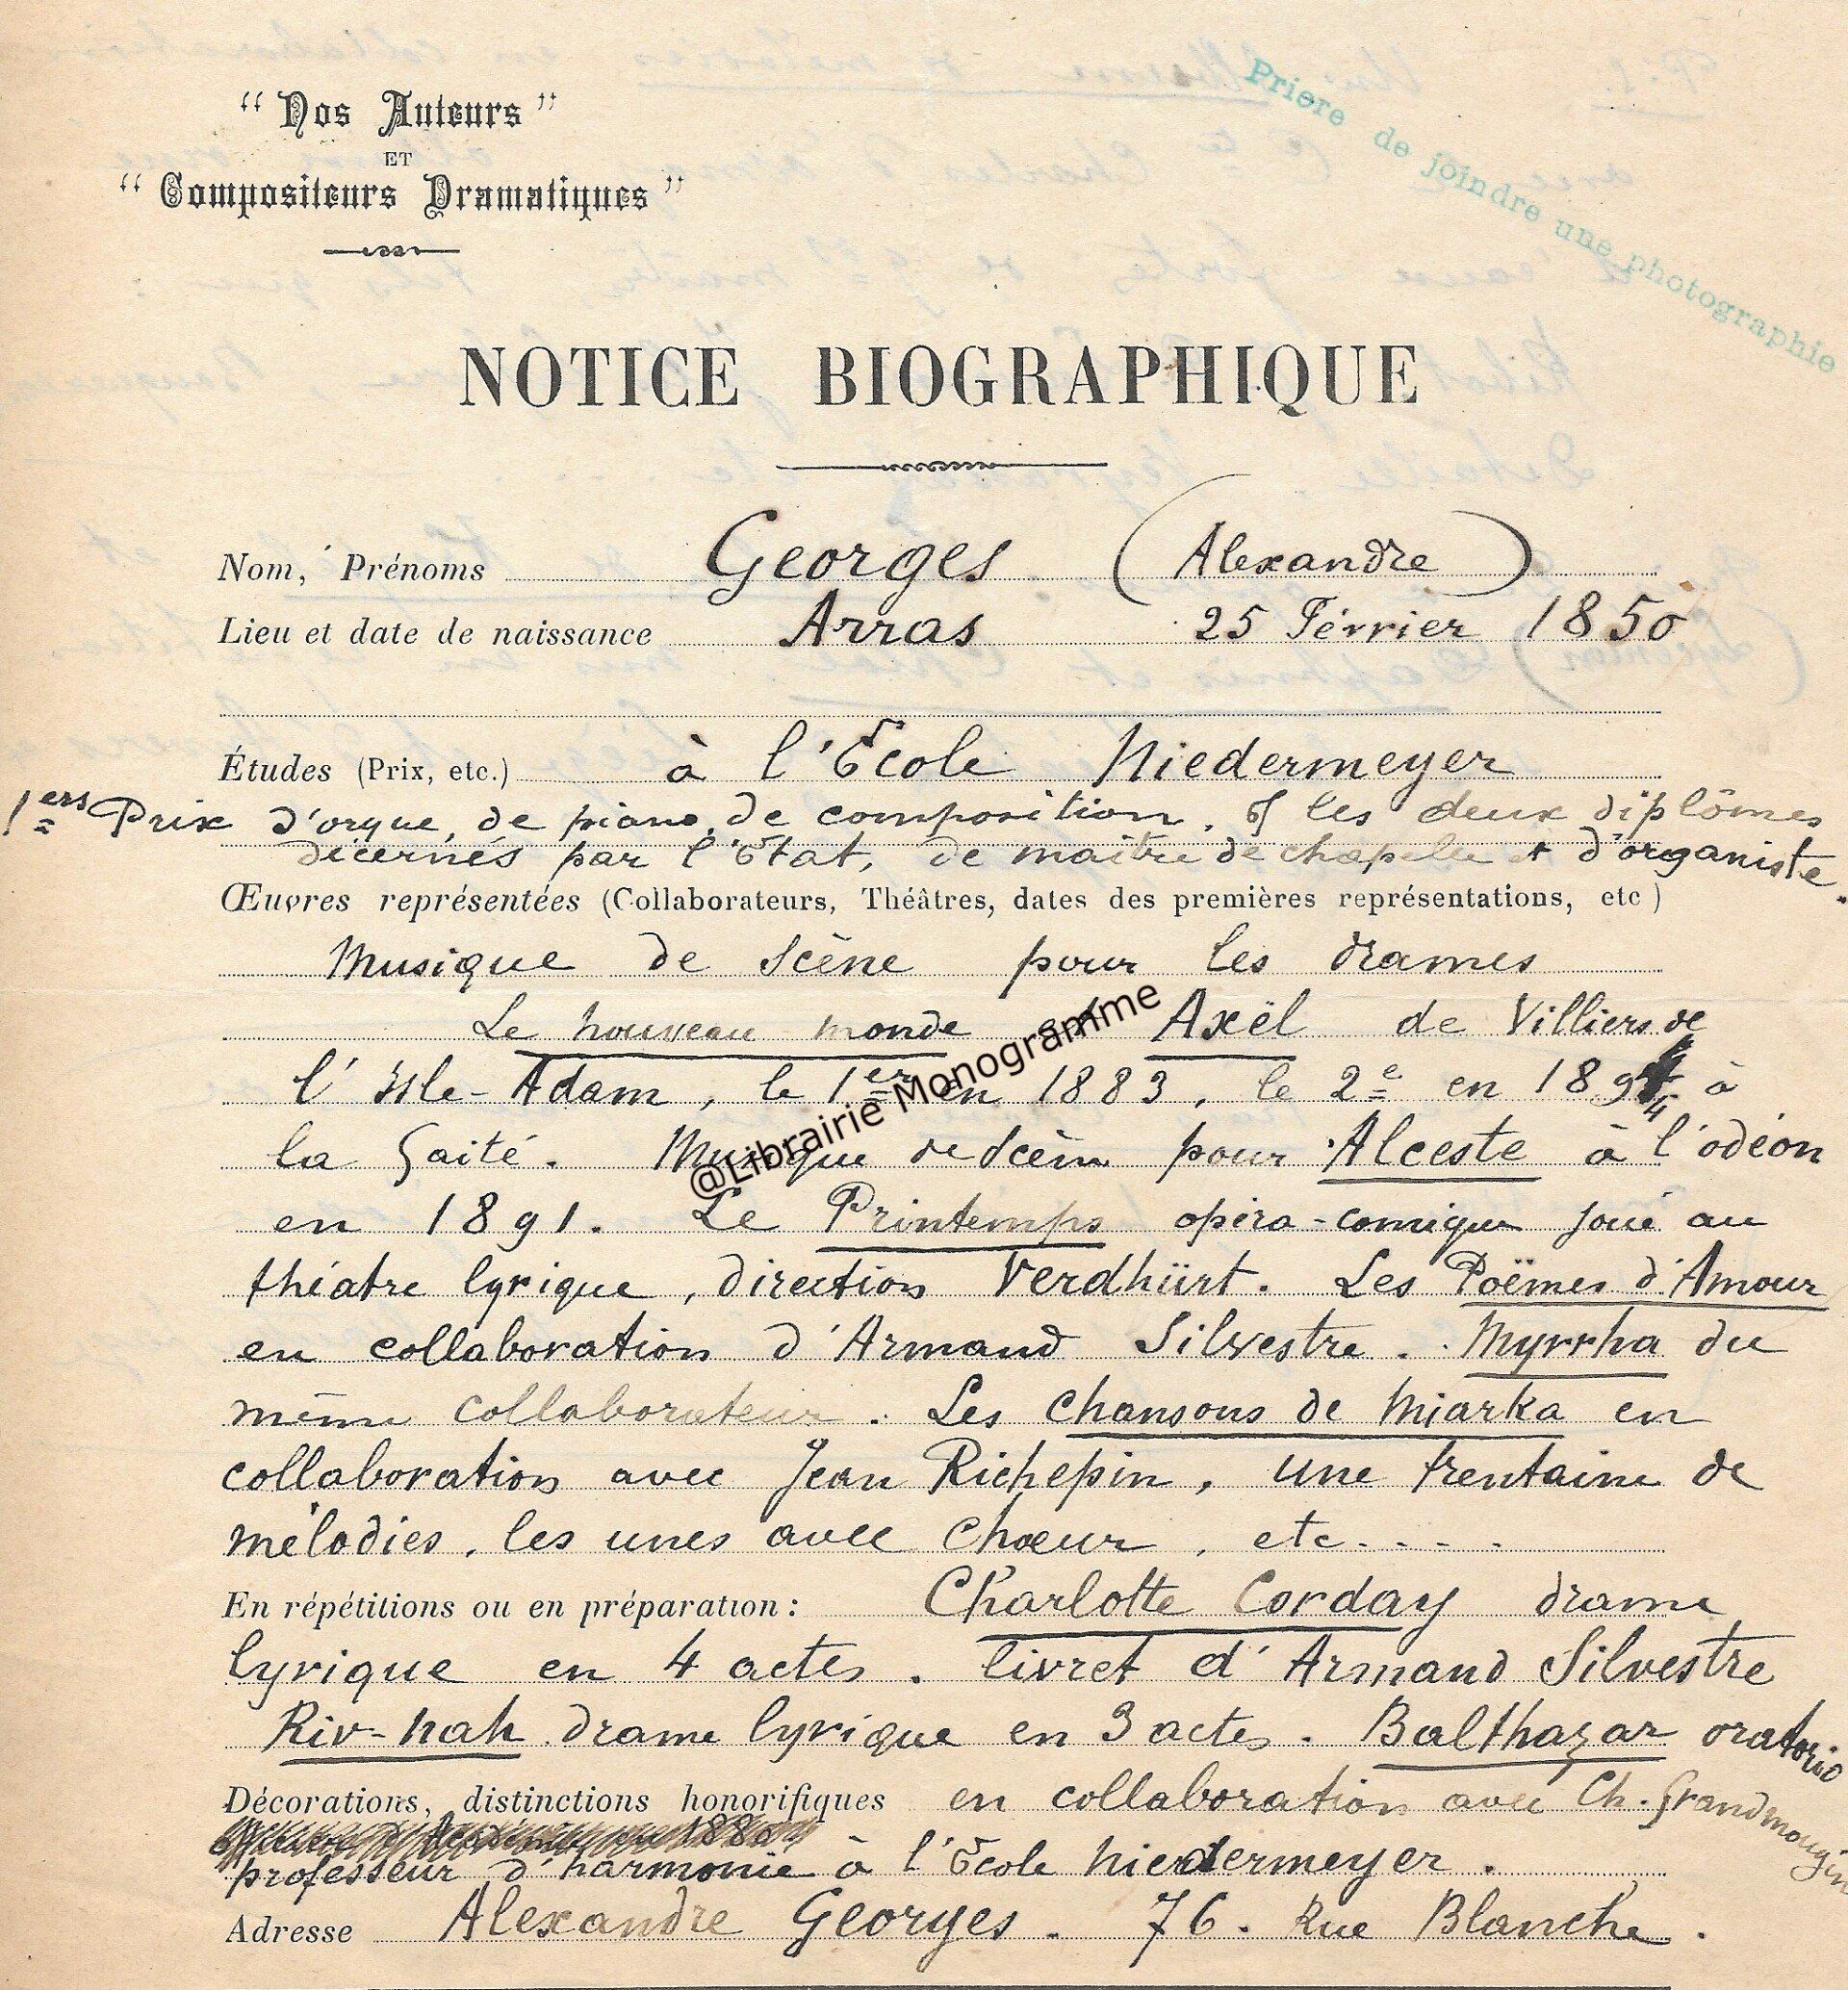 “ Nos Auteurs ”
ET
“ Compositeurs Dramatiques ”
Prière de joindre une photographie
NOTICE BIOGRAPHIQUE
Nom, Prénoms Georges (Alexandre)
Lieu et date de naissance Arras 25 Février 1850
Études (Prix, etc.) à l'École Niedermeyer
1ers Prix d'orgue, de piano, de composition, & les deux diplômes
décernés par l'État, de maître de chapelle et d'organiste.
Œuvres représentées (Collaborateurs, Théâtres, dates des premières représentations, etc)
Musique de scène pour les drames
Le nouveau monde et Axël de Villiers de
l'Isle-Adam, le 1er en 1883, le 2e en 1894 à
la Gaité. Musique de scène pour Alceste à l'odéon
en 1891. Le Printemps opéra-comique joué au
théatre lyrique, direction Verdhürt. Les Poëmes d'Amour
en collaboration d'Armand Silvestre. Myrrha du
même collaborateur. Les Chansons de Miarka en
collaboration avec Jean Richepin, une trentaine de
mélodies, les unes avec chœur, etc....
En répétitions ou en préparation: Charlotte Corday drame
lyrique en 4 actes. livret d'Armand Silvestre
Riv-nah drame lyrique en 3 actes. Balthazar oratorio
Décorations, distinctions honorifiques en collaboration avec Ch. Grandmougin
professeur d'harmonie à l'École Niedermeyer.
Adresse Alexandre Georges. 76. Rue Blanche.
@Librairie Monogramme